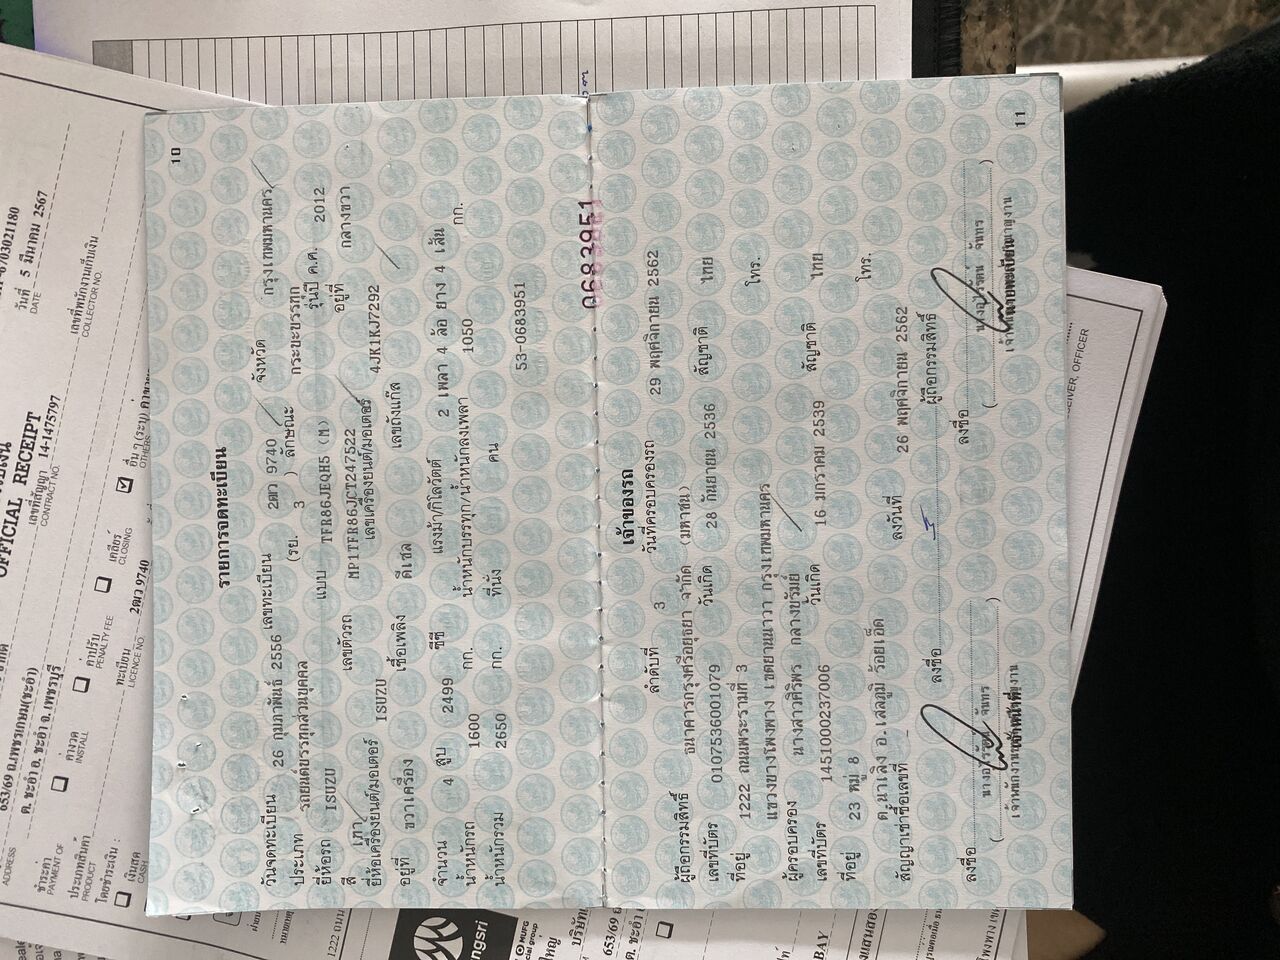 10
รายการจดทะเบียน
วันจดทะเบียน 26 กุมภาพันธ์ 2556 เลขทะเบียน 2ฒว 9740 จังหวัด กรุงเทพมหานคร
ประเภท รถยนต์บรรทุกส่วนบุคคล (รย. 3 ) ลักษณะ กระบะบรรทุก
ยี่ห้อรถ ISUZU แบบ TFR86JEQH5 (M) รุ่นปี ค.ศ. 2012
สี เทา เลขตัวรถ MP1TFR86JCT247522 อยู่ที่ กลางขวา
ยี่ห้อเครื่องยนต์/มอเตอร์ ISUZU เลขเครื่องยนต์/มอเตอร์ 4JK1KJ7292
อยู่ที่ ขวาเครื่อง เชื้อเพลิง ดีเซล เลขถังแก๊ส
จำนวน 4 สูบ 2499 ซีซี แรงม้า/กิโลวัตต์ 2 เพลา 4 ล้อ ยาง 4 เส้น
น้ำหนักรถ 1600 กก. น้ำหนักบรรทุก/น้ำหนักลงเพลา 1050 กก.
น้ำหนักรวม 2650 กก. ที่นั่ง คน
53-0683951
0683951
เจ้าของรถ
ลำดับที่ 3 วันที่ครอบครองรถ 29 พฤศจิกายน 2562
ผู้ถือกรรมสิทธิ์ ธนาคารกรุงศรีอยุธยา จำกัด (มหาชน)
เลขที่บัตร 0107536001079 วันเกิด 28 กันยายน 2536 สัญชาติ ไทย
ที่อยู่ 1222 ถนนพระรามที่ 3 โทร.
แขวงบางโพงพาง เขตยานนาวา กรุงเทพมหานคร
ผู้ครอบครอง นางสาวศิริพร กลางบุรัมย์
เลขที่บัตร 1451000237006 วันเกิด 16 มกราคม 2539 สัญชาติ ไทย
ที่อยู่ 23 หมู่ 8 โทร.
ต.นาเลิง อ.เสลภูมิ ร้อยเอ็ด
สัญญาเช่าซื้อเลขที่ ลงวันที่ 26 พฤศจิกายน 2562
ลงชื่อ ผู้ถือกรรมสิทธิ์
ลงชื่อ ลงชื่อ
11
OFFICIAL RECEIPT
วันที่ 5 มีนาคม 2567
DATE
เลขที่สัญญา 14-1475797
CONTRACT NO.
เลขที่พนักงานเก็บเงิน
COLLECTOR NO.
ADDRESS
653/69 ถ.เพชรเกษม(ชะอำ)
ต. ชะอำ อ. ชะอำ จ. เพชรบุรี
ชำระค่า
PAYMENT OF
ค่างวด
INSTALL
ค่าปรับ
PENALTY FEE
เคลียร์
CLOSING
อื่น ๆ (ระบุ)
OTHERS
ประเภทสินค้า
PRODUCT
ทะเบียน 2ฒว 9740
LICENCE NO.
โดยชำระเงิน :
เงินสด
CASH
MUFG
EIVER, OFFICER
BAY